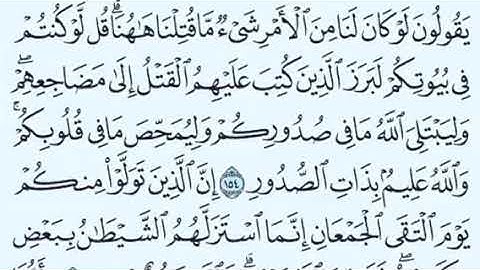 يَقُولُونَ لَوْ كَانَ لَنَا مِنَ ٱلْأَمْرِ شَىْءٌ مَّا قُتِلْنَا هَـٰهُنَا ۗ قُل لَّوْ كُنتُمْ
فِى بُيُوتِكُمْ لَبَرَزَ ٱلَّذِينَ كُتِبَ عَلَيْهِمُ ٱلْقَتْلُ إِلَىٰ مَضَاجِعِهِمْ ۖ
وَلِيَبْتَلِىَ ٱللَّهُ مَا فِى صُدُورِكُمْ وَلِيُمَحِّصَ مَا فِى قُلُوبِكُمْ ۗ
وَٱللَّهُ عَلِيمٌۢ بِذَاتِ ٱلصُّدُورِ ١٥٤ إِنَّ ٱلَّذِينَ تَوَلَّوْا۟ مِنكُمْ
يَوْمَ ٱلْتَقَى ٱلْجَمْعَانِ إِنَّمَا ٱسْتَزَلَّهُمُ ٱلشَّيْطَـٰنُ بِبَعْضِ